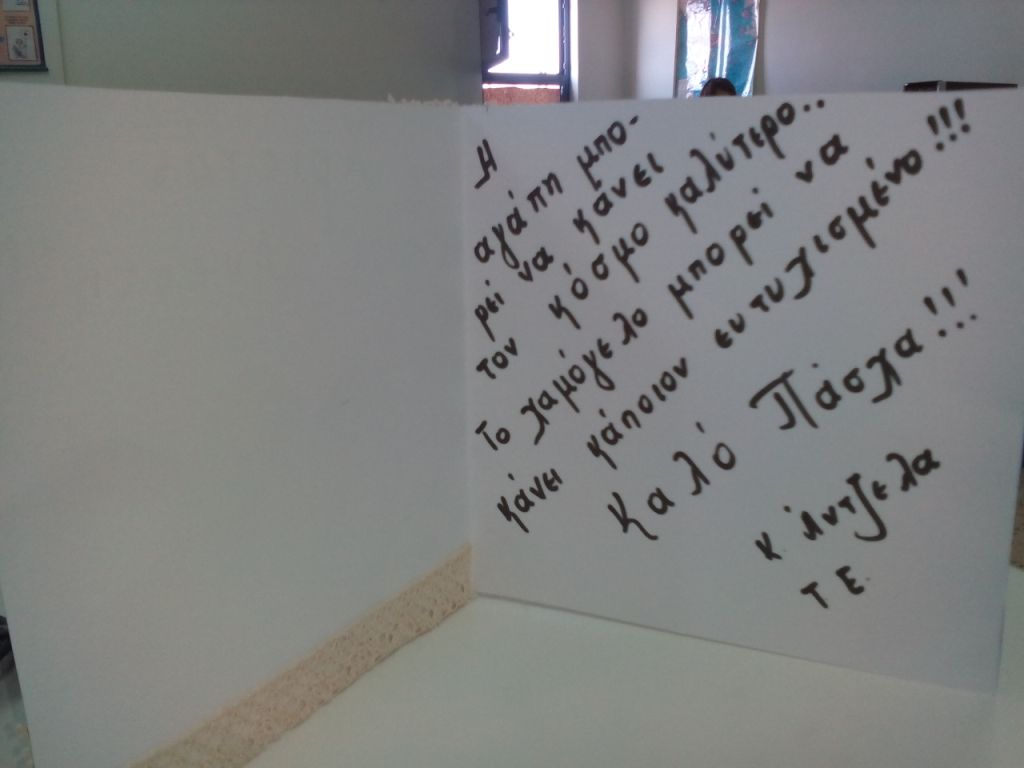 Η
αγάπη μπο-
ρεί να κάνει
τον κόσμο καλύτερο..
Το χαμόγελο μπορεί να
κάνει κάποιον ευτυχισμένο!!!
Καλό Πάσχα!!!
κ. Άντζελα
Τ Ε.